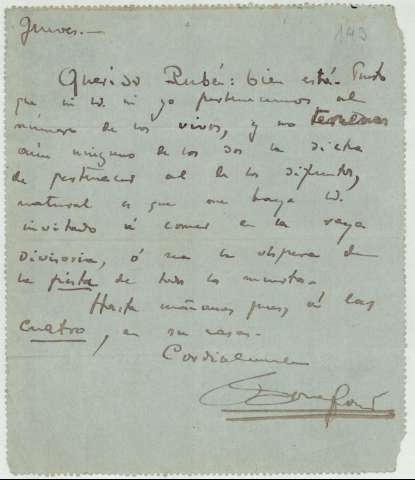 Jueves.—
143
Querido Rubén: bien está. Puesto
que ni Vd. ni yo pertenecemos al
número de los vivos, y no tenemos
aún ninguno de los dos la dicha
de pertenecer al de los difuntos,
natural es que me haya Vd.
invitado á comer en la raya
divisoria, ó sea la víspera de
la fiesta de todos los muertos.
Hasta mañana pues, á las
cuatro, en su casa.
Cordialmente
Bonafoux